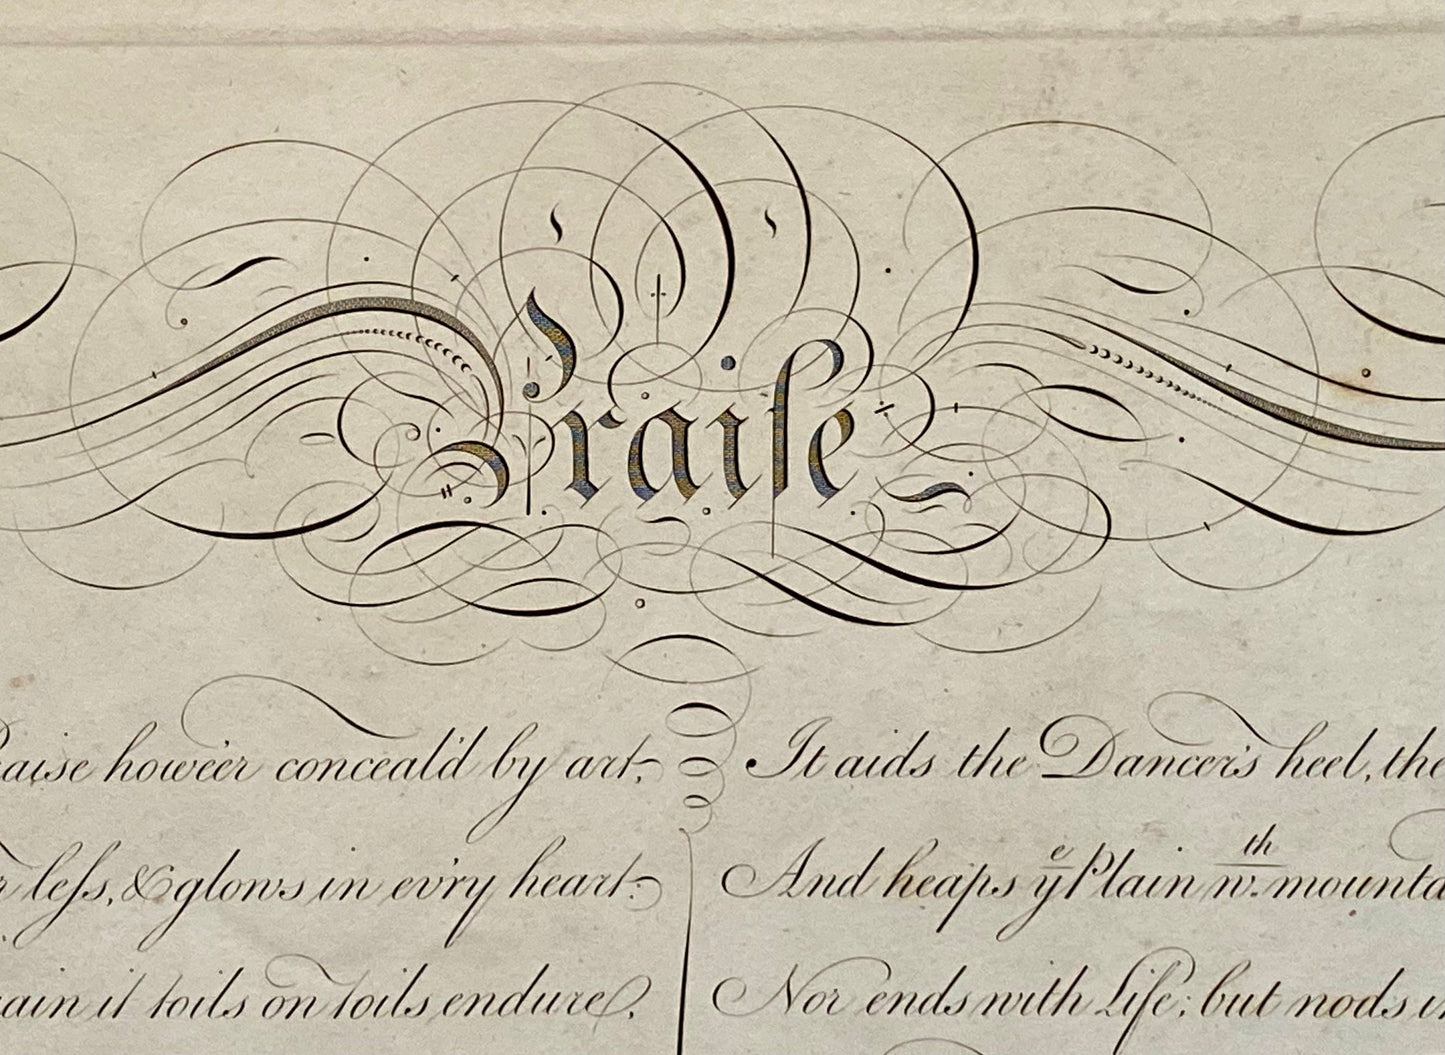 Praiſe
raise howe'er conceal'd by art,
r leſs, & glows in ev'ry heart:
ain it toils on toils endure,
It aids the Dancer's heel, the
And heaps yᵉ Plain wᵗʰ. mounta
Nor ends with Life; but nods